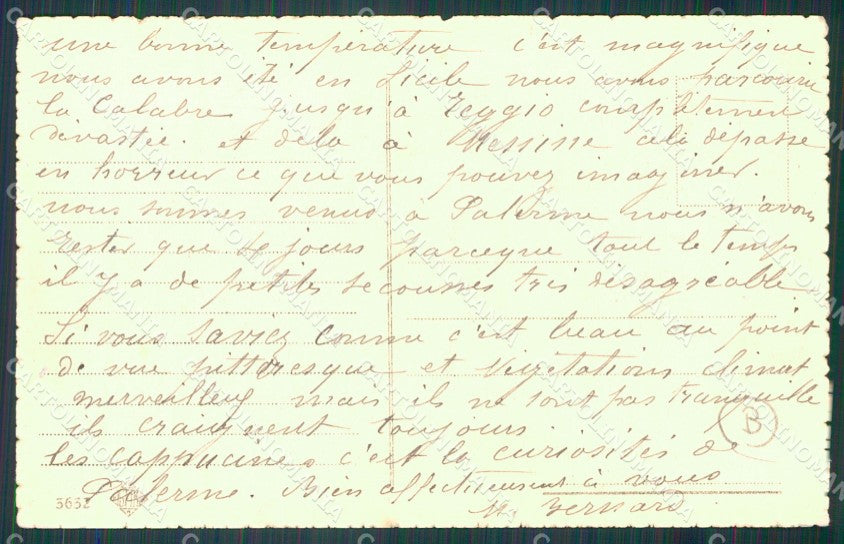 une bonne température c'est magnifique
nous avons été en Sicile nous avons parcouru
la Calabre jusqu'à Reggio complètement
dévastée. et de la à Messine cela dépasse
en horreur ce que vous pouvez imaginer.
nous sommes venus à Palerme nous n'avons
rester que jours parceque tout le temps
il y a de petites secousses très désagréable
Si vous saviez comme c'est beau au point
de vue pittoresque et Végétations climat
merveilleux mais ils ne sont pas tranquille
ils craignent toujours
B
les cappucines c'est la curiosités de
Palerme. Bien affectueusement à vous
M Bernard
3632
CARTOLINOMANIA